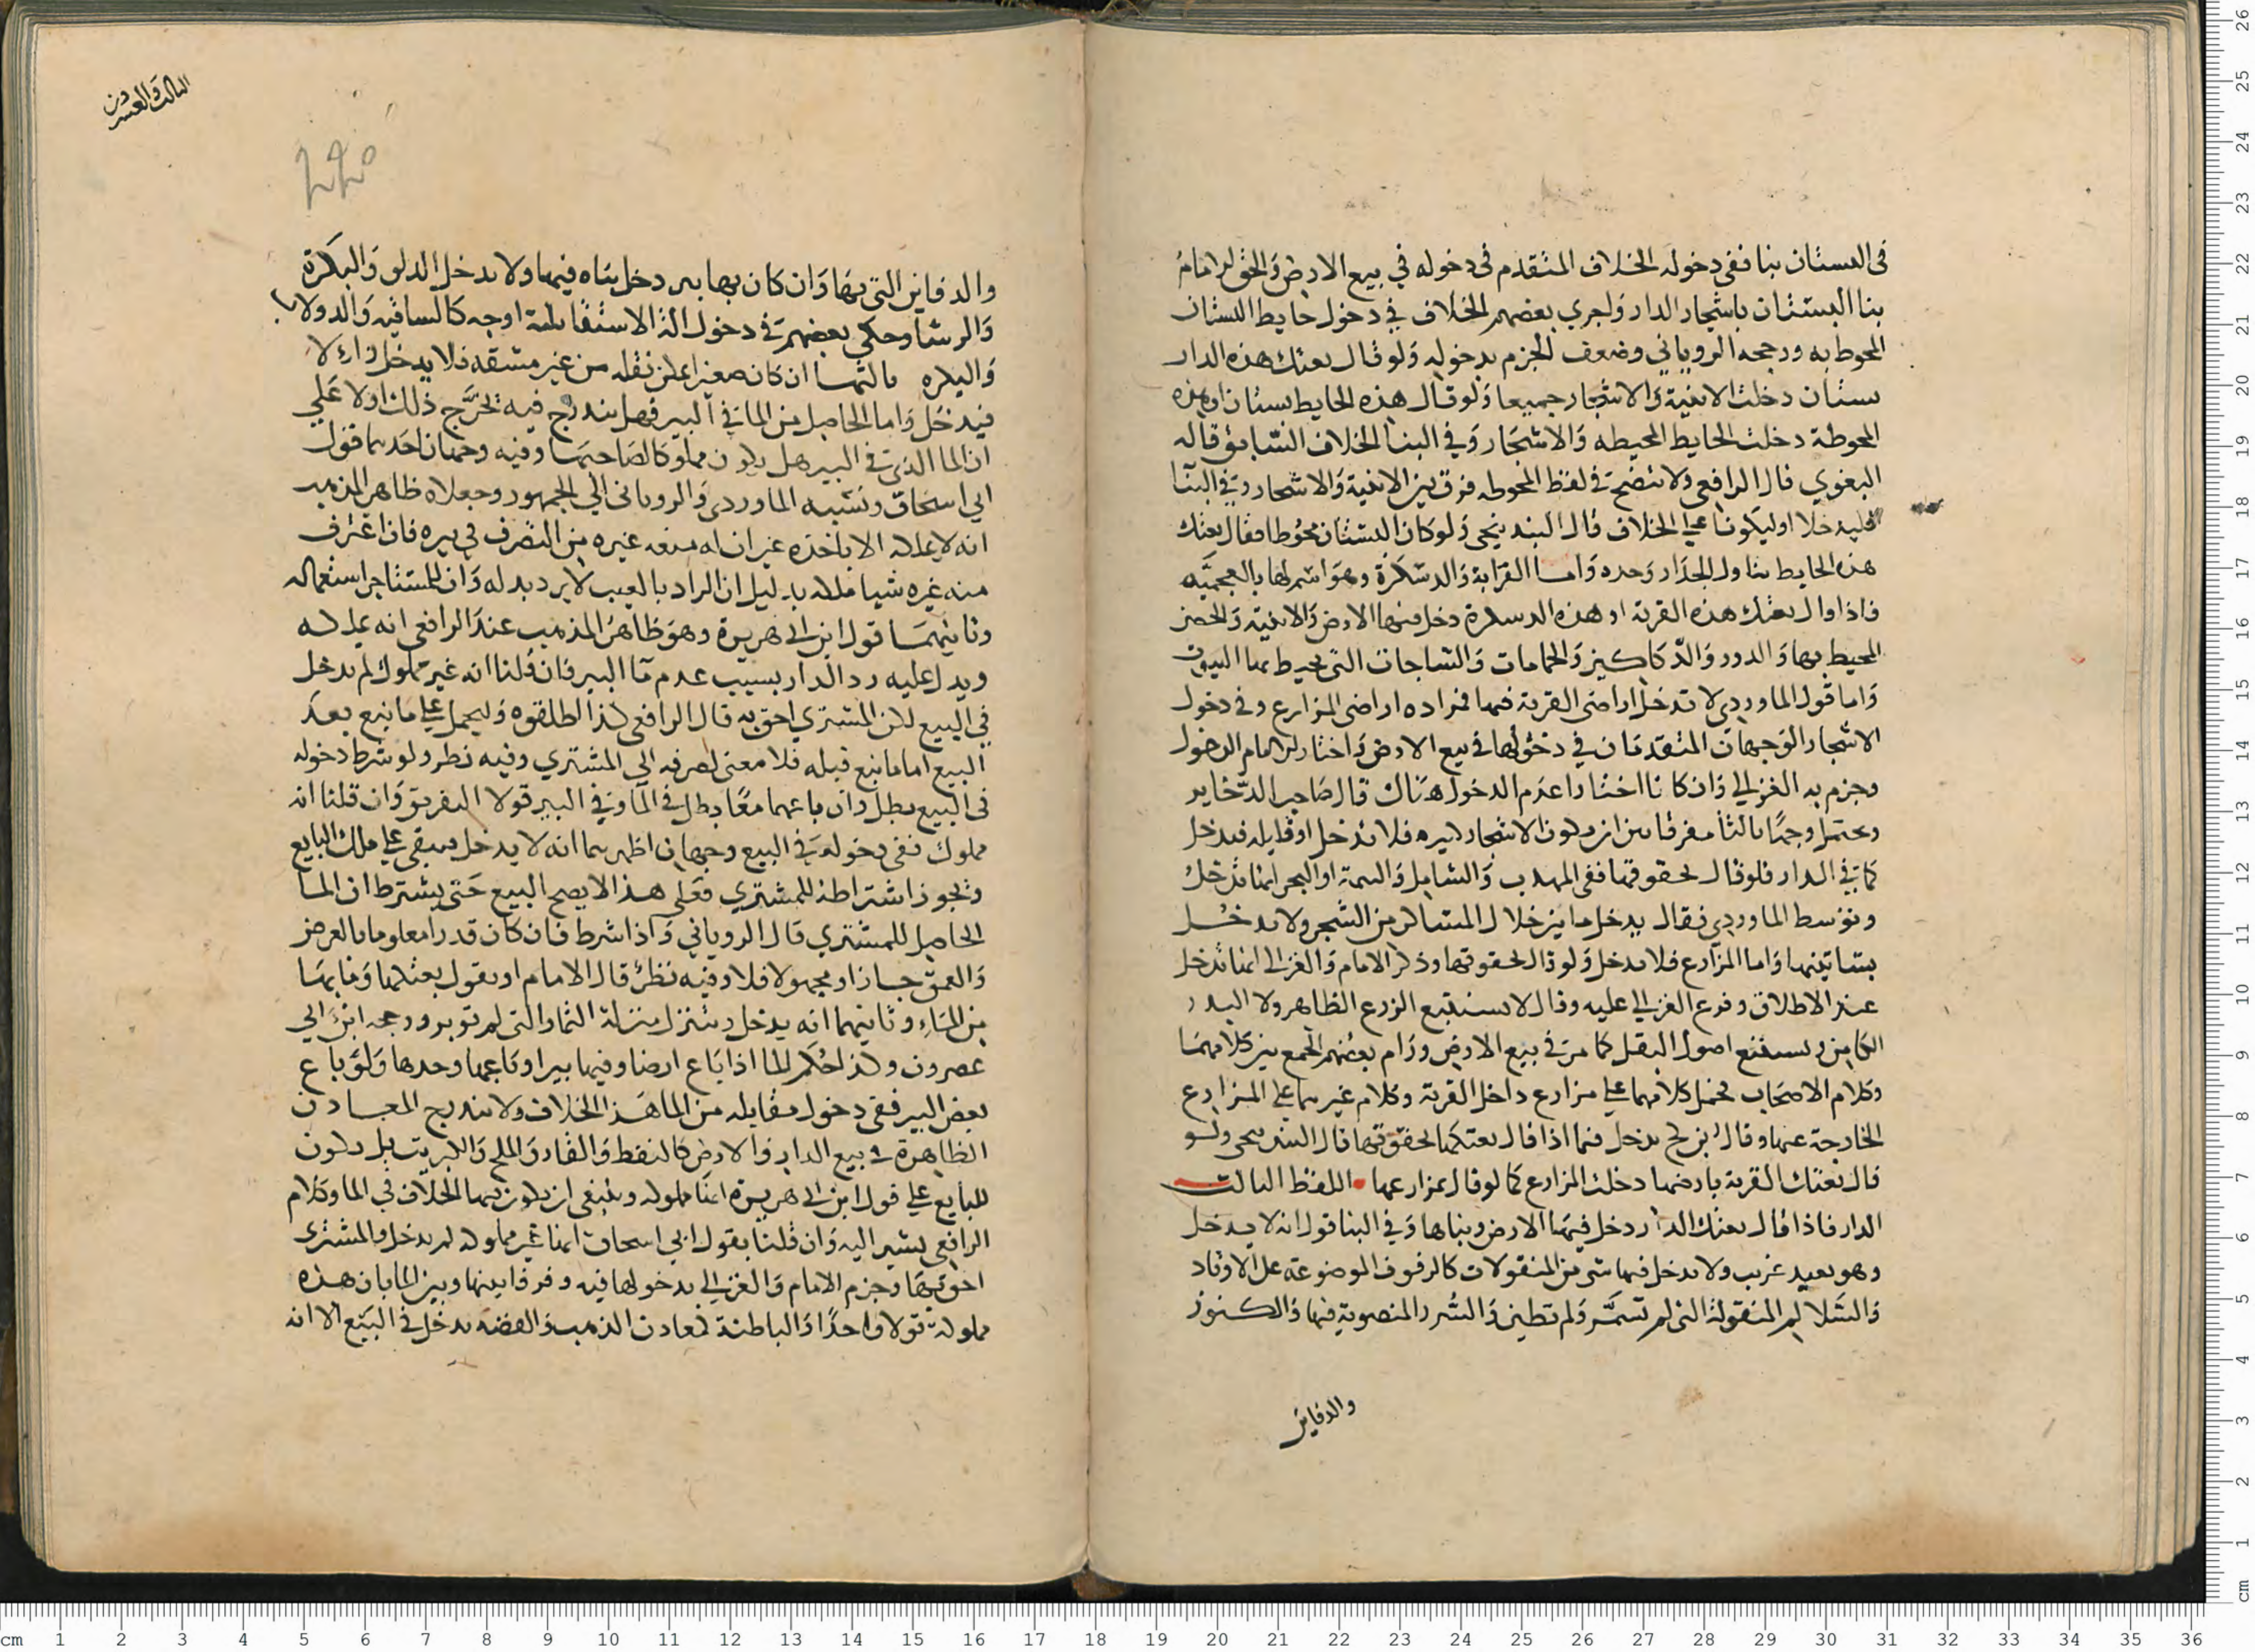 فى البستان بنا ففى دخوله الخلاف المتقدم فى دخوله في بيع الارض والحق الامام
بنا البستان باشجار الدار واجري بعضهم الخلاف في دخول حايط البستان
المحوط به ورجحه الروياني وضعف الجزم بدخوله ولو قال بعتك هذه الدار
بستان دخلت الابنية والاشجار جميعا ولو قال هذه الحايط بستان او هذه
المحوطة دخلت الحايط المحيطه والاشجار وفي البنا الخلاف السابق قاله
البغوي قال الرافعى ولا يتضح في لفظ المحوطه فرق بين الابنية والاشجار وفي البنا
فليدخلا او ليكونا علي الخلاف قال البندنيجى ولو كان البستان محوطا فقال بعتك
هذه الحايط تناول الجدار وحده واما القرية والدسكرة وهو اسم لها بالعجميه
فاذا قال بعتك هذه القرية او هذه الدسكرة دخل فيها الارض والابنية والحصن
المحيط بها والدور والدكاكين والحمامات والساجات التى يحيط بها البيوت
واما قول الماوردي لا تدخل اراضى القرية فيها فمراده اراضى المزارع وفى دخول
الاشجار الوجهان المتقدمان في دخولها في بيع الارض واختار الامام الدخول
وجزم به الغزالي وان كانا اختارا عدم الدخول هناك قال صاحب الذخاير
ويحتمل وجها ثالثا مفرقا بين ان يكون الاشجار كبيره فلا تدخل او قليله فيدخل
كما في الدار فلو قال بحقوقها ففى المهذب والشامل والتتمة او البحر انها تدخل
وتوسط الماوردي فقال يدخل ما بين خلال المساكن من الشجر ولا تدخل
بساتينها واما المزارع فلا تدخل ولو قال بحقوقها وذكر الامام والغزالى انها تدخل
عند الاطلاق وفرع الغزالي عليه وقال لا يستتبع الزرع الظاهر ولا البذر
الكامن ويستتبع اصول البقل كما مر في بيع الارض ورام بعضهم الجمع بين كلامهما
وكلام الاصحاب فحمل كلامهما على مزارع داخل القرية وكلام غيرهما على المزارع
الخارجة عنها وقال ابن كج يدخل فيما اذا قال بعتكها بحقوقها قال البندنيجى ولو
قال بعتك القرية بارضها دخلت المزارع كما لو قال بمزارعها اللفظ الثالث
الدار فاذا قال بعتك الدار دخل فيها الارض وبناها وفي البنا قول انه لا يدخل
وهو بعيد غريب ولا يدخل فيها شى من المنقولات كالرفوف الموضوعة على الاوتاد
والسلالم المنقولة التى لم تسمر ولم تطين والسرر المنصوبة فيها والكنوز
والدفاين
الثالث والعشرون
٢٢٥
والدفاين التى بها وان كان بها بير دخل بناه فيها ولا يدخل الدلو والبكرة
والرشا وحكى بعضهم في دخول الة الاستقا ثلثة اوجه كالساقيه والدولاب
والبكره ثالثها ان كان صغيرا يمكن نقله من غير مشقه فلا يدخل والا
فيدخل واما الحاصل من الما في البير فهل يندرج فيه يخرج ذلك اولا على
ان الما الذى في البير هل يكون مملوكا لصاحبها وفيه وجهان احدهما قول
ابي اسحاق ونسبه الماوردى والروياني الى الجمهور وجعلاه ظاهر المذهب
انه لا يملكه الا باخذه غير ان له منعه غيره من التصرف في بيره فاذا اغترف
منه غيره شيا ملكه بدليل ان الراد بالعيب لا يرد بدله وان للمستاجر استعماله
وثانيهما قول ابن ابي هريرة وهو ظاهر المذهب عند الرافعى انه يملكه
ويدل عليه رد الدار بسبب عدم ما البير فان قلنا انه غير مملوك لم يدخل
في البيع لكن المشتري احق به قال الرافعى كذا اطلقوه وليحمل على ما نبع بعد
البيع اما ما نبع قبله فلا معنى لصرفه الى المشتري وفيه نظر ولو شرط دخوله
فى البيع بطل وان باعهما معا بطل في الما وفي البير قولا التفريق وان قلنا انه
مملوك ففى دخوله في البيع وجهان اظهرهما انه لا يدخل ويبقى على ملك البايع
ويجوز اشتراطه للمشتري فعلى هذا لا يصح البيع حتى يشترط ان الما
الحاصل للمشتري قال الروياني واذا شرط فان كان قدرا معلوما بالعرض
والعمق جاز او مجهولا فلا وفيه نظر قال الامام او يقول بعتكها وما بها
من الماء وثانيهما انه يدخل ويتنزل منزلة الثمار التى لم توبر ورجحه ابن ابي
عصرون وكذا حكم الما اذا باع ارضا وفيها بير او باعها وحدها ولو باع
بعض البير ففى دخول مقابله من الما هذا الخلاف ولا يندرج المعادن
الظاهرة في بيع الدار والارض كالنفط والقار والملح والكبريت بل يكون
للبايع على قول ابن ابى هريرة انها مملوكه وينبغى ان يكون فيها الخلاف في الما وكلام
الرافعى يشير اليه وان قلنا بقول ابي اسحاق انها غير مملوكه لم يدخل والمشترى
احق بها وجزم الامام والغزالي بدخولها فيه وفرقا بينها وبين الما بان هذه
مملوكة قولا واحدا والباطنة كمعادن الذهب والفضه يدخل في البيع الا انه